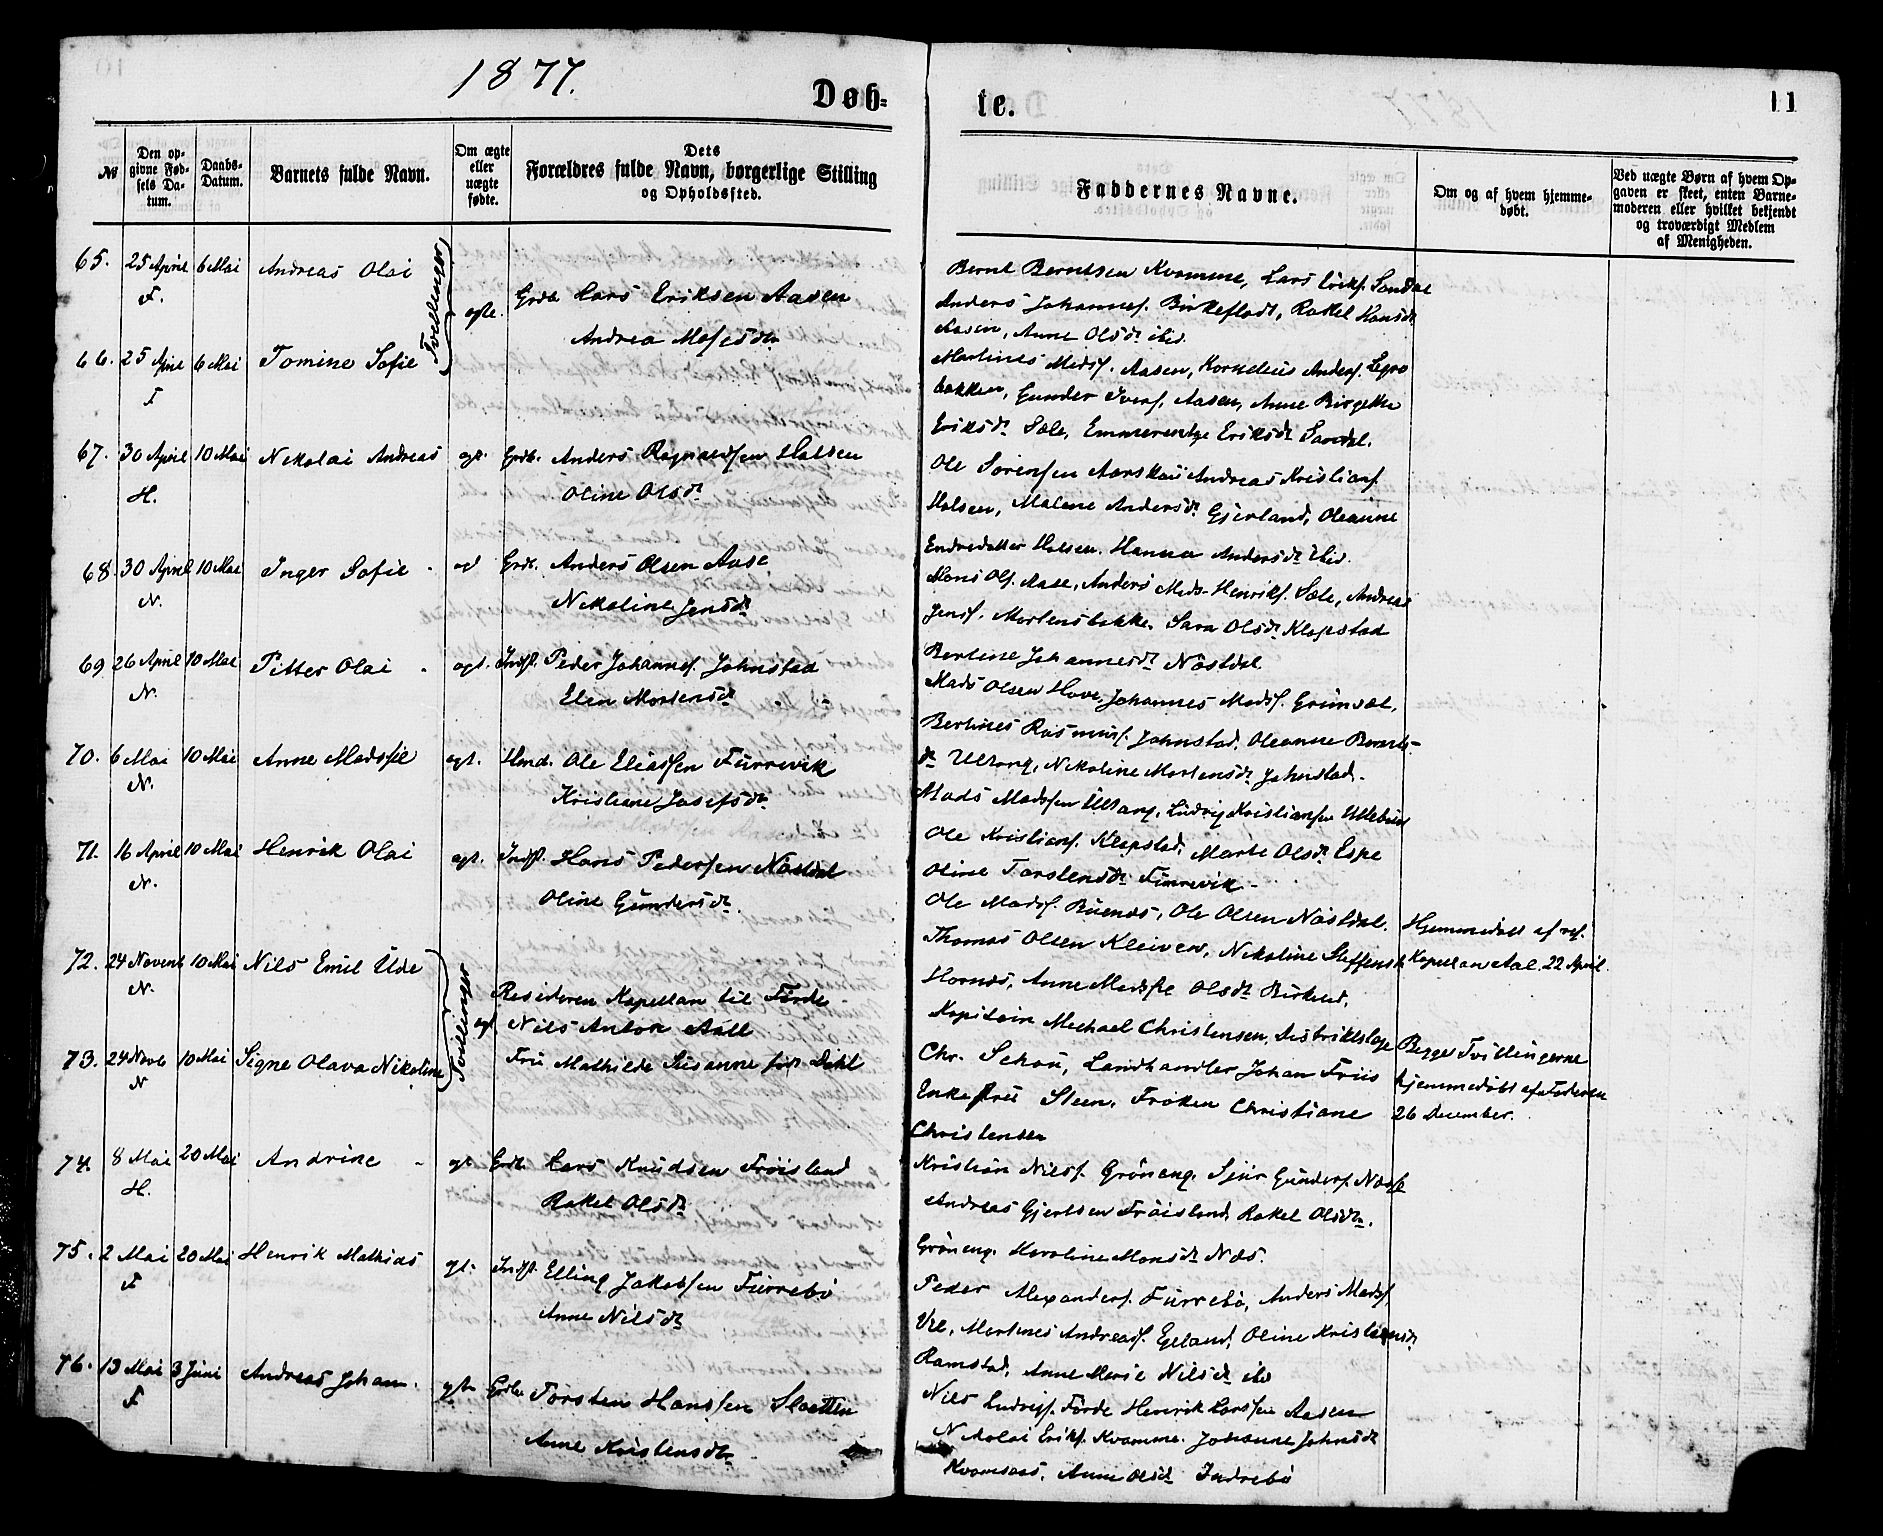 1877.
Døb-
te.
11
№
Den op-
givne Fød-
sels Da-
tum.
Daabs-
Datum.
Barnets fulde Navn.
Om ægte
eller
uægte
fødte.
Dets
Forældres fulde Navn, borgerlige Stilling
og Opholdssted.
Faddernes Navne.
Om og af hvem hjemme-
døbt.
Ved uægte Børn af hvem Op-
gaven er skeet, enten Barne-
moderen eller hvilket bekjendt
og troværdigt Medlem
af Menigheden.
65. 25 April 6 Mai Andreas Olai
F.
Tvillinger
ægte. Grdb. Lars Eriksen Aasen
Andrea Mosesdtr
Bernt Berntsen Kvamme, Lars Eriks. Sandal
Anders Johannes. Birkeflot, Rakel Hansdt
Aasen, Anne Olsdt ibid.
66. 25 April 6 Mai Tomine Sofie
F
Martines Mads. Aasen, Kornelius Anders. Legre
bakken, Gunder Ivers. Aasen, Anne Birgitte
Eriksdt Sæle, Emmerentze Eriksdt Sandal.
67. 30 April 10 Mai Nikolai Andreas ægt. Grdb. Anders Ragnvaldsen Halsen
H.
Oline Olsdt
Ole Sørensen Aarskau Andreas Kristians.
Halsen, Malene Andersdt Gjerland, Oleanne
Endredatter Halsen. Hanna Andersdt ibid.
68. 30 April 10 Mai Inger Sofie - Grdb. Anders Olsen Aase
N.
Nikoline Jensdt
Mons Ols. Aase, Anders Mads- Henriks. Sæle, Andreas
Jens. Mortensbakke. Sara Olsdt Klopstad
Berline Johannesdt Nåstdal.
69 26 April 10 Mai Pitter Olai - ægt. Indst. Peder Johannes. Johnstad
N.
Elen Mortensdt
Mads Olsen Hove, Johannes Mads. Grimsæt,
Bertines Rasmus. Johnstad. Oleanne Bernts-
dt Ultang, Nikoline Mortensdt Johnstad.
70. 6 Mai 10 Mai Anne Madsfie ægt. Hmd. Ole Eliassen Furrevik
N.
Kristiane Josefsdt
Mads Madssen Ultang, Ludvig Kristiansen
Ole Kristians. Klopstad, Marte Olsdt Espe
Oline Torstensdt Furrevik -
71. 16 April 10 Mai Henrik Olai ægt. Indst. Hans Pedersen Nåstdal
N.
Oline Gundersdt.
Ole Mads. Buenes, Ole Olsen Nåstdal.
Thomas Olsen Kleiven, Nikoline Steffensdt
Hornes, Anne Madsfie Olsdt
Hjemmedøbt af res.
Kapellan Aal. 22 April.
72. 24 Novemb 10 Mai Nils Emil Ude
N.
Tvillinger
ægt
Resideren Kapellan til Førde
Nils Anton Aall
Fru Mathilde Susanne født Dahl
Kapitain Michael Christensen, Distriktslæge
Chr. Schou, Landhandler Johan Friis
Enkefru Steen, Frøken Christiane
Christensen
73. 24 Novb 10 Mai Signe Olava Nikoline
N
Begge Tvillingerne
hjemmedøbt af Faderen
26 December.
74. 8 Mai 20 Mai Andrine - ægt Grdb. Lars Knudsen Frøisland
H.
Rakel Olsdt
Kristian Nils. Grøneng. Sjur Gunders. Næss
Andreas Gjertsen Frøisland. Rakel Olsdtr.
Grøneng. Karoline Monsdt Næs.
75. 2 Mai 20 Mai Henrik Mathias ægt. Indst. Elling Jakobsen Furrebø
F
Anne Nilsdt
Peder Alexanders. Furrebø, Anders Mads.
Martines Andreas. Egeland, Oline Kristiansdt
Ramstad, Anne Marie Nilsdt ibid
76. 13 Mai 3 Juni Andreas Johan. ægt. Grdbr Torsten Hanssen Slaatten
F
Anne Kristensdtr.
Nils Ludvigs. Førde Henrik Larssen Aasen
Nikolai Eriks. Kvamme. Johanne Johnsdt
Kvamsaas, Anne Olsdt Indrebø